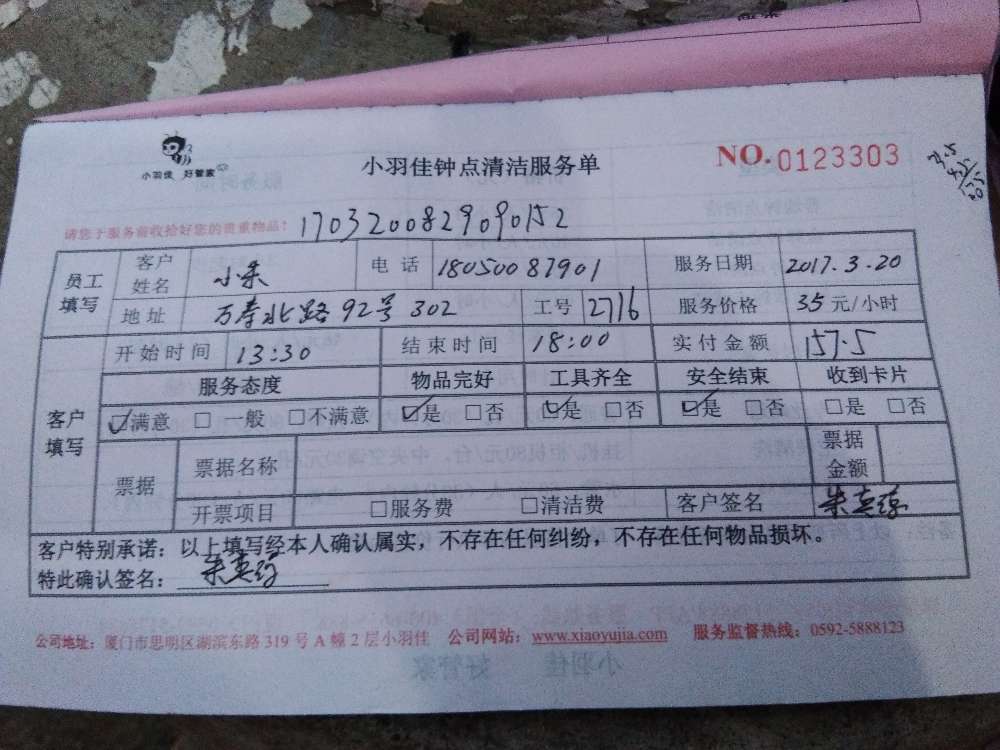 小羽佳 好管家
小羽佳钟点清洁服务单
NO.0123303
请您于服务前收拾好您的贵重物品!
1703200829090152
员工填写 客户姓名 小朱 电话 18050087901 服务日期 2017.3.20
地址 万寿北路92号302 工号 2716 服务价格 35元/小时
客户填写 开始时间 13:30 结束时间 18:00 实付金额 157.5
服务态度 物品完好 工具齐全 安全结束 收到卡片
☑满意 □一般 □不满意 ☑是 □否 ☑是 □否 ☑是 □否 □是 □否
票据 票据名称 票据金额
开票项目 □服务费 □清洁费 客户签名
客户特别承诺:以上填写经本人确认属实,不存在任何纠纷,不存在任何物品损坏。
特此确认签名:
公司地址:厦门市思明区湖滨东路319号A幢2层小羽佳 公司网站:www.xiaoyujia.com 服务监督热线:0592-5888123